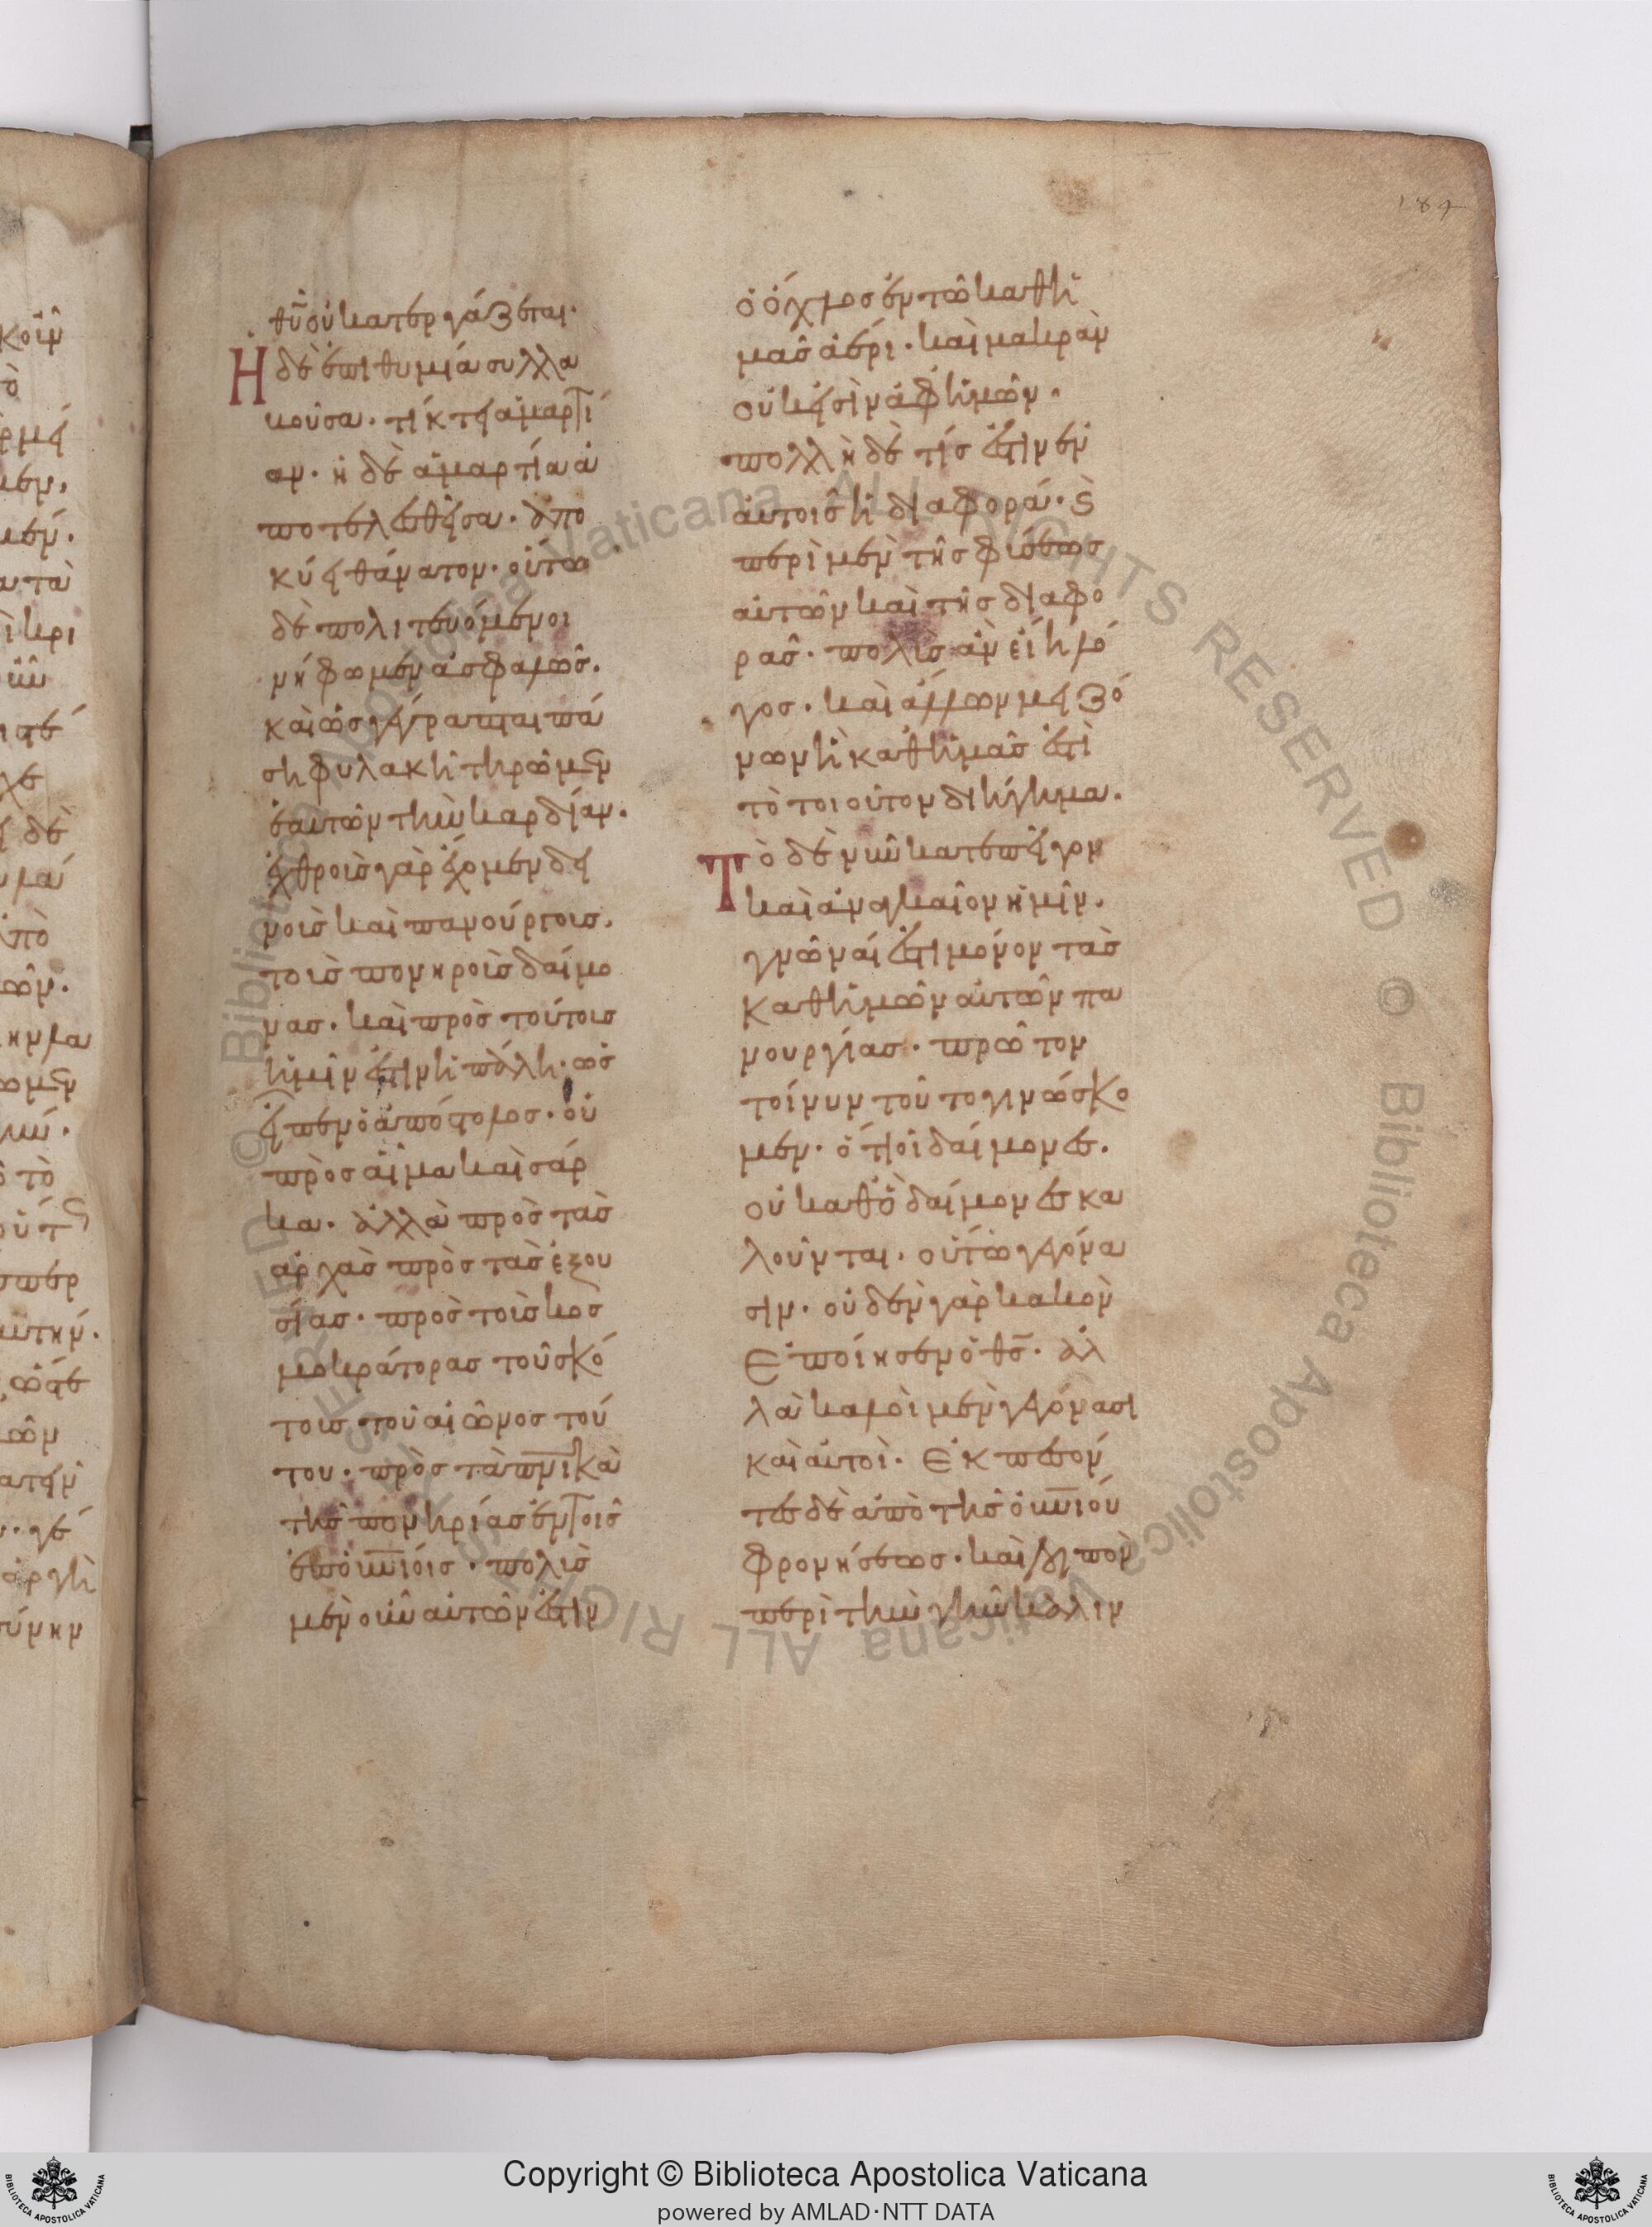 184
θῦ οὐ κατεργάζεται·
Ἡ δὲ ἐπιθυμία συλλα
κοῦσα· τίκτει ἁμαρτί
αν· ἡ δὲ ἁμαρτία ἀ
ποτελεσθεῖσα· ἀπο
κύει θάνατον· οὕτω
δὲ πολιτευόμενοι
νήφωμεν ἀσφαλῶς.
καὶ ὡς γέγραπται πά
ση φυλακῆ τηρῶμεν
ἑαυτῶν τὴν καρδίαν.
ἐχθροὺς γὰρ ἔχομεν δει
νοὺς καὶ πανούργους.
τοὺς πονηροὺς δαίμο
νας. καὶ πρὸς τούτους
ἡμῖν ἐστιν ἡ πάλη· ὡς
εἶπεν ὁ ἀπόστολος. οὐ
πρὸς αἷμα καὶ σάρ
κα. ἀλλὰ πρὸς τὰς
ἀρχὰς πρὸς τὰς ἐξου
σίας. πρὸς τοὺς κοσ
μοκράτορας τοῦ σκό
τους τοῦ αἰῶνος τού
του. πρὸς τὰ πνικὰ
τῆς πονηρίας ἐν τοῖς
ἐπουνίοις. πολὺς
μὲν οὖν αὐτῶν ἐστιν
ὁ ὄχλος ἐν τῶ καθ' ἡ
μᾶς ἀέρι. καὶ μακρὰν
οὐκ εἰσὶν ἀφ' ἡμῶν.
πολλὴ δέ τίς ἐστιν ἐν
αὐτοῖς ἡ διαφορά. ϛ
περὶ μὲν τῆς φύσεως
αὐτῶν καὶ τῆς διαφο
ρᾶς. πολὺς ἂν εἴη λό
γος. καὶ ἄλλων μειζό
νων ἢ καθ' ἡμᾶς ἐστὶ
τὸ τοιοῦτον διήγημα.
Τὸ δὲ νῦν κατεπεῖγον
καὶ ἀναγκαῖον ἡμῖν.
γνῶναί ἐστι μόνον τὰς
καθ' ἡμῶν αὐτῶν πα
νουργίας. πρῶτον
τοίνυν τοῦτο γινώσκο
μεν. ὅτι οἱ δαίμονες.
οὐ καθ' ὃ δαίμονες κα
λοῦνται. οὕτω γεγόνα
σιν. οὐδὲν γὰρ κακὸν
ἐποίησεν ὁ θς. ἀλ
λὰ καλοὶ μὲν γεγόνασι
καὶ αὐτοὶ. ἐκπεσόν
τες δὲ ἀπὸ τῆς οὐνιου
φρονήσεως. καὶ λοιπὸν
περὶ τὴν γῆν καλιν